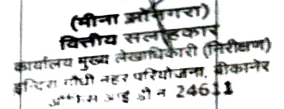 (मीना ओनगरा)
वित्तीय सलाहकार
कार्यालय मुख्य लेखाधिकारी (निरीक्षण)
इन्दिरा गाँधी नहर परियोजना, बीकानेर
24611